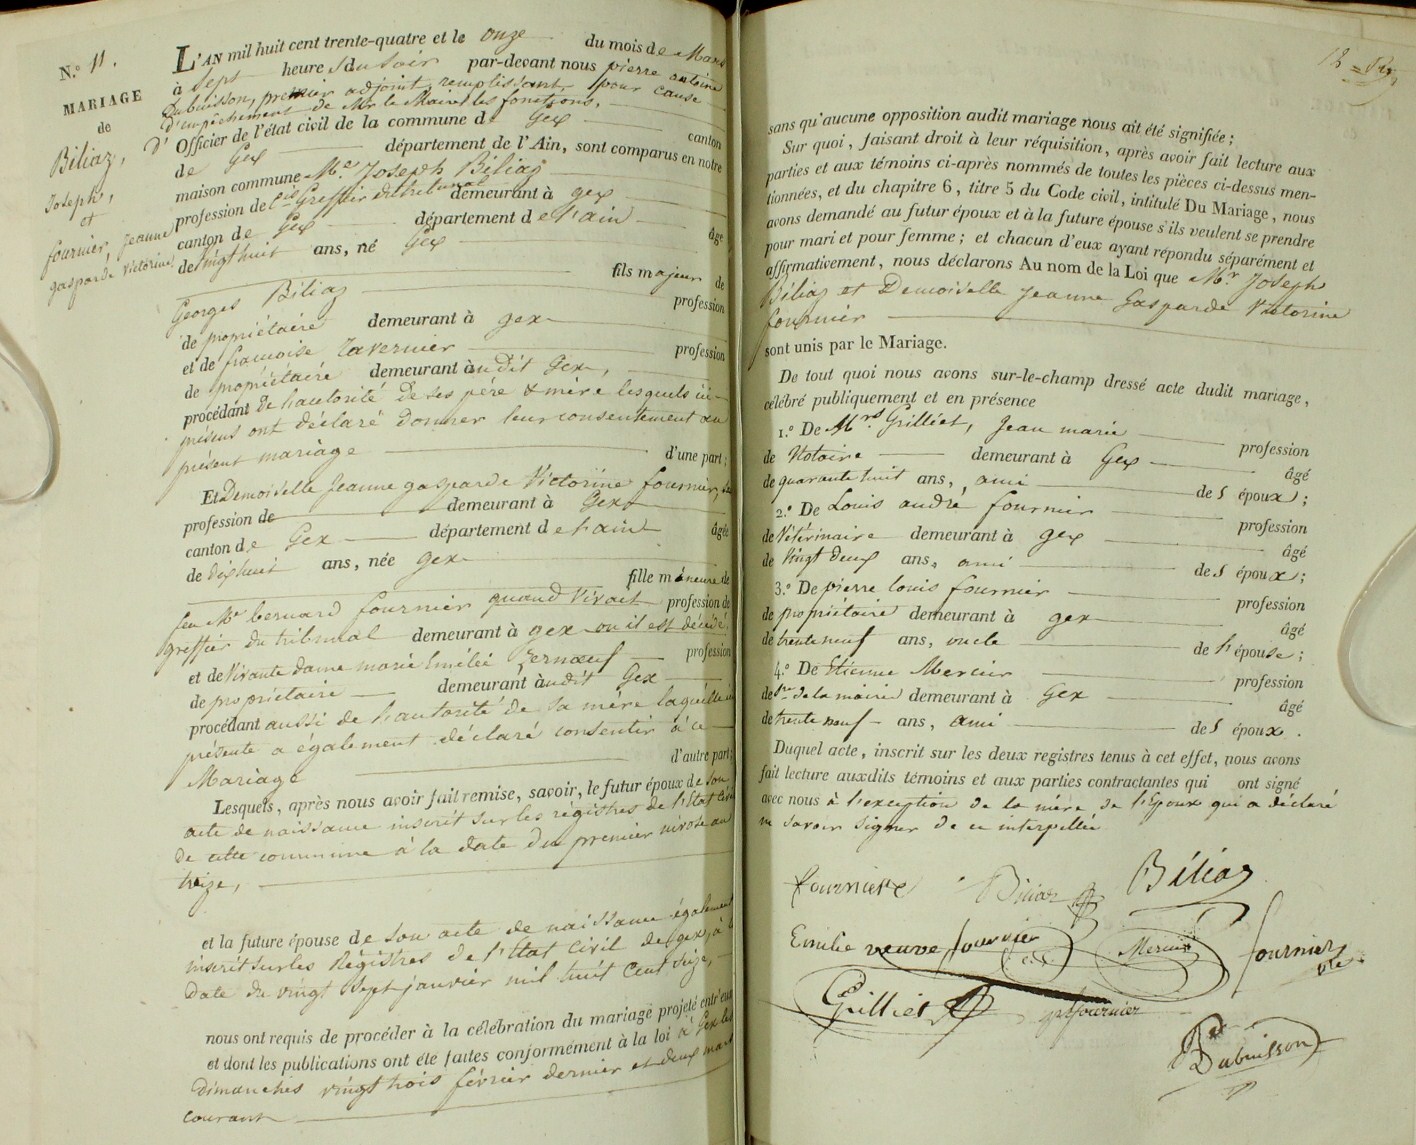 N.° 11.
MARIAGE
de
Biliaz,
Joseph,
et
fournier, jeanne
gasparde victorine
L'AN mil huit cent trente-quatre et le onze du mois de Mars
à Sept heures du Soir par-devant nous pierre antoine
Dubuisson, premier adjoint, remplissant pour cause
d'empêchement de Mr le Maire les fonctions,
d' Officier de l'état civil de la commune de Gex canton
de Gex département de l'Ain, sont comparus en notre
maison commune Mr. Joseph Biliaz
profession de Greffier du tribunal demeurant à gex
canton de Gex département de l'ain âgé
de vingthuit ans, né Gex
fils majeur de
Georges Biliaz profession
de propriétaire demeurant à gex
et de francoise Tavernier profession
de propriétaire demeurant audit Gex,
procédant de l'autorité de ses père & mère lesquels ici
présens ont déclaré donner leur consentement au
présent mariage d'une part;
Et Demoiselle Jeanne gasparde Victorine fournier,
profession de demeurant à Gex
canton de Gex département de l'ain âgée
de dixhuit ans, née gex
fille mineure de
feu Mr bernard fournier quand vivait profession de
greffier du tribunal demeurant à gex ou il est décédé
et de vivante dame marie Emélie profession
de propriétaire demeurant audit Gex
procédant aussi de l'autorité de sa mère laquelle
présente a également déclaré consentir à ce
Mariage d'autre part;
Lesquels, après nous avoir fait remise, savoir, le futur époux de son
acte de naissance inscrit sur les régistres de l'Etat civil
de cette commune à la date du premier nivose an
treize,
et la future épouse de son acte de naissance également
inscrit sur les Régistres de l'Etat Civil de gex, à la
date du vingt sept janvier mil huit cent seize,
nous ont requis de procéder à la célébration du mariage projeté entr'eux
et dont les publications ont été faites conformément à la loi à Gex les
dimanches vingttrois février dernier et deux mars
courant
sans qu'aucune opposition audit mariage nous ait été signifiée;
Sur quoi, faisant droit à leur réquisition, après avoir fait lecture aux
parties et aux témoins ci-après nommés de toutes les pièces ci-dessus men-
tionnées, et du chapitre 6, titre 5 du Code civil, intitulé Du Mariage, nous
avons demandé au futur époux et à la future épouse s'ils veulent se prendre
pour mari et pour femme; et chacun d'eux ayant répondu séparément et
affirmativement, nous déclarons Au nom de la Loi que Mr. Joseph
Biliaz et Demoiselle Jeanne Gasparde Victorine
fournier
sont unis par le Mariage.
De tout quoi nous avons sur-le-champ dressé acte dudit mariage,
célébré publiquement et en présence
1.° De Mrs. Grilliet, Jean marie profession
de Notaire demeurant à Gex âgé
de quarante huit ans, ami de l'époux;
2.° De Louis andré fournier profession
de Vétérinaire demeurant à gex âgé
de vingt deux ans, ami de l'époux;
3.° De pierre louis fournier profession
de propriétaire demeurant à gex âgé
de trente neuf ans, oncle de l'épouse;
4.° De Etienne Mercier profession
de Sre de la mairie demeurant à Gex âgé
de trente neuf ans, ami de l'époux.
Duquel acte, inscrit sur les deux registres tenus à cet effet, nous avons
fait lecture auxdits témoins et aux parties contractantes qui ont signé
avec nous à l'exception de la mère de l'époux qui a déclaré
ne savoir signer de ce interpellée
fournier Biliaz Biliaz
Emilie veuve fournier Mercier fournier
Grilliet fournier
Dubuisson